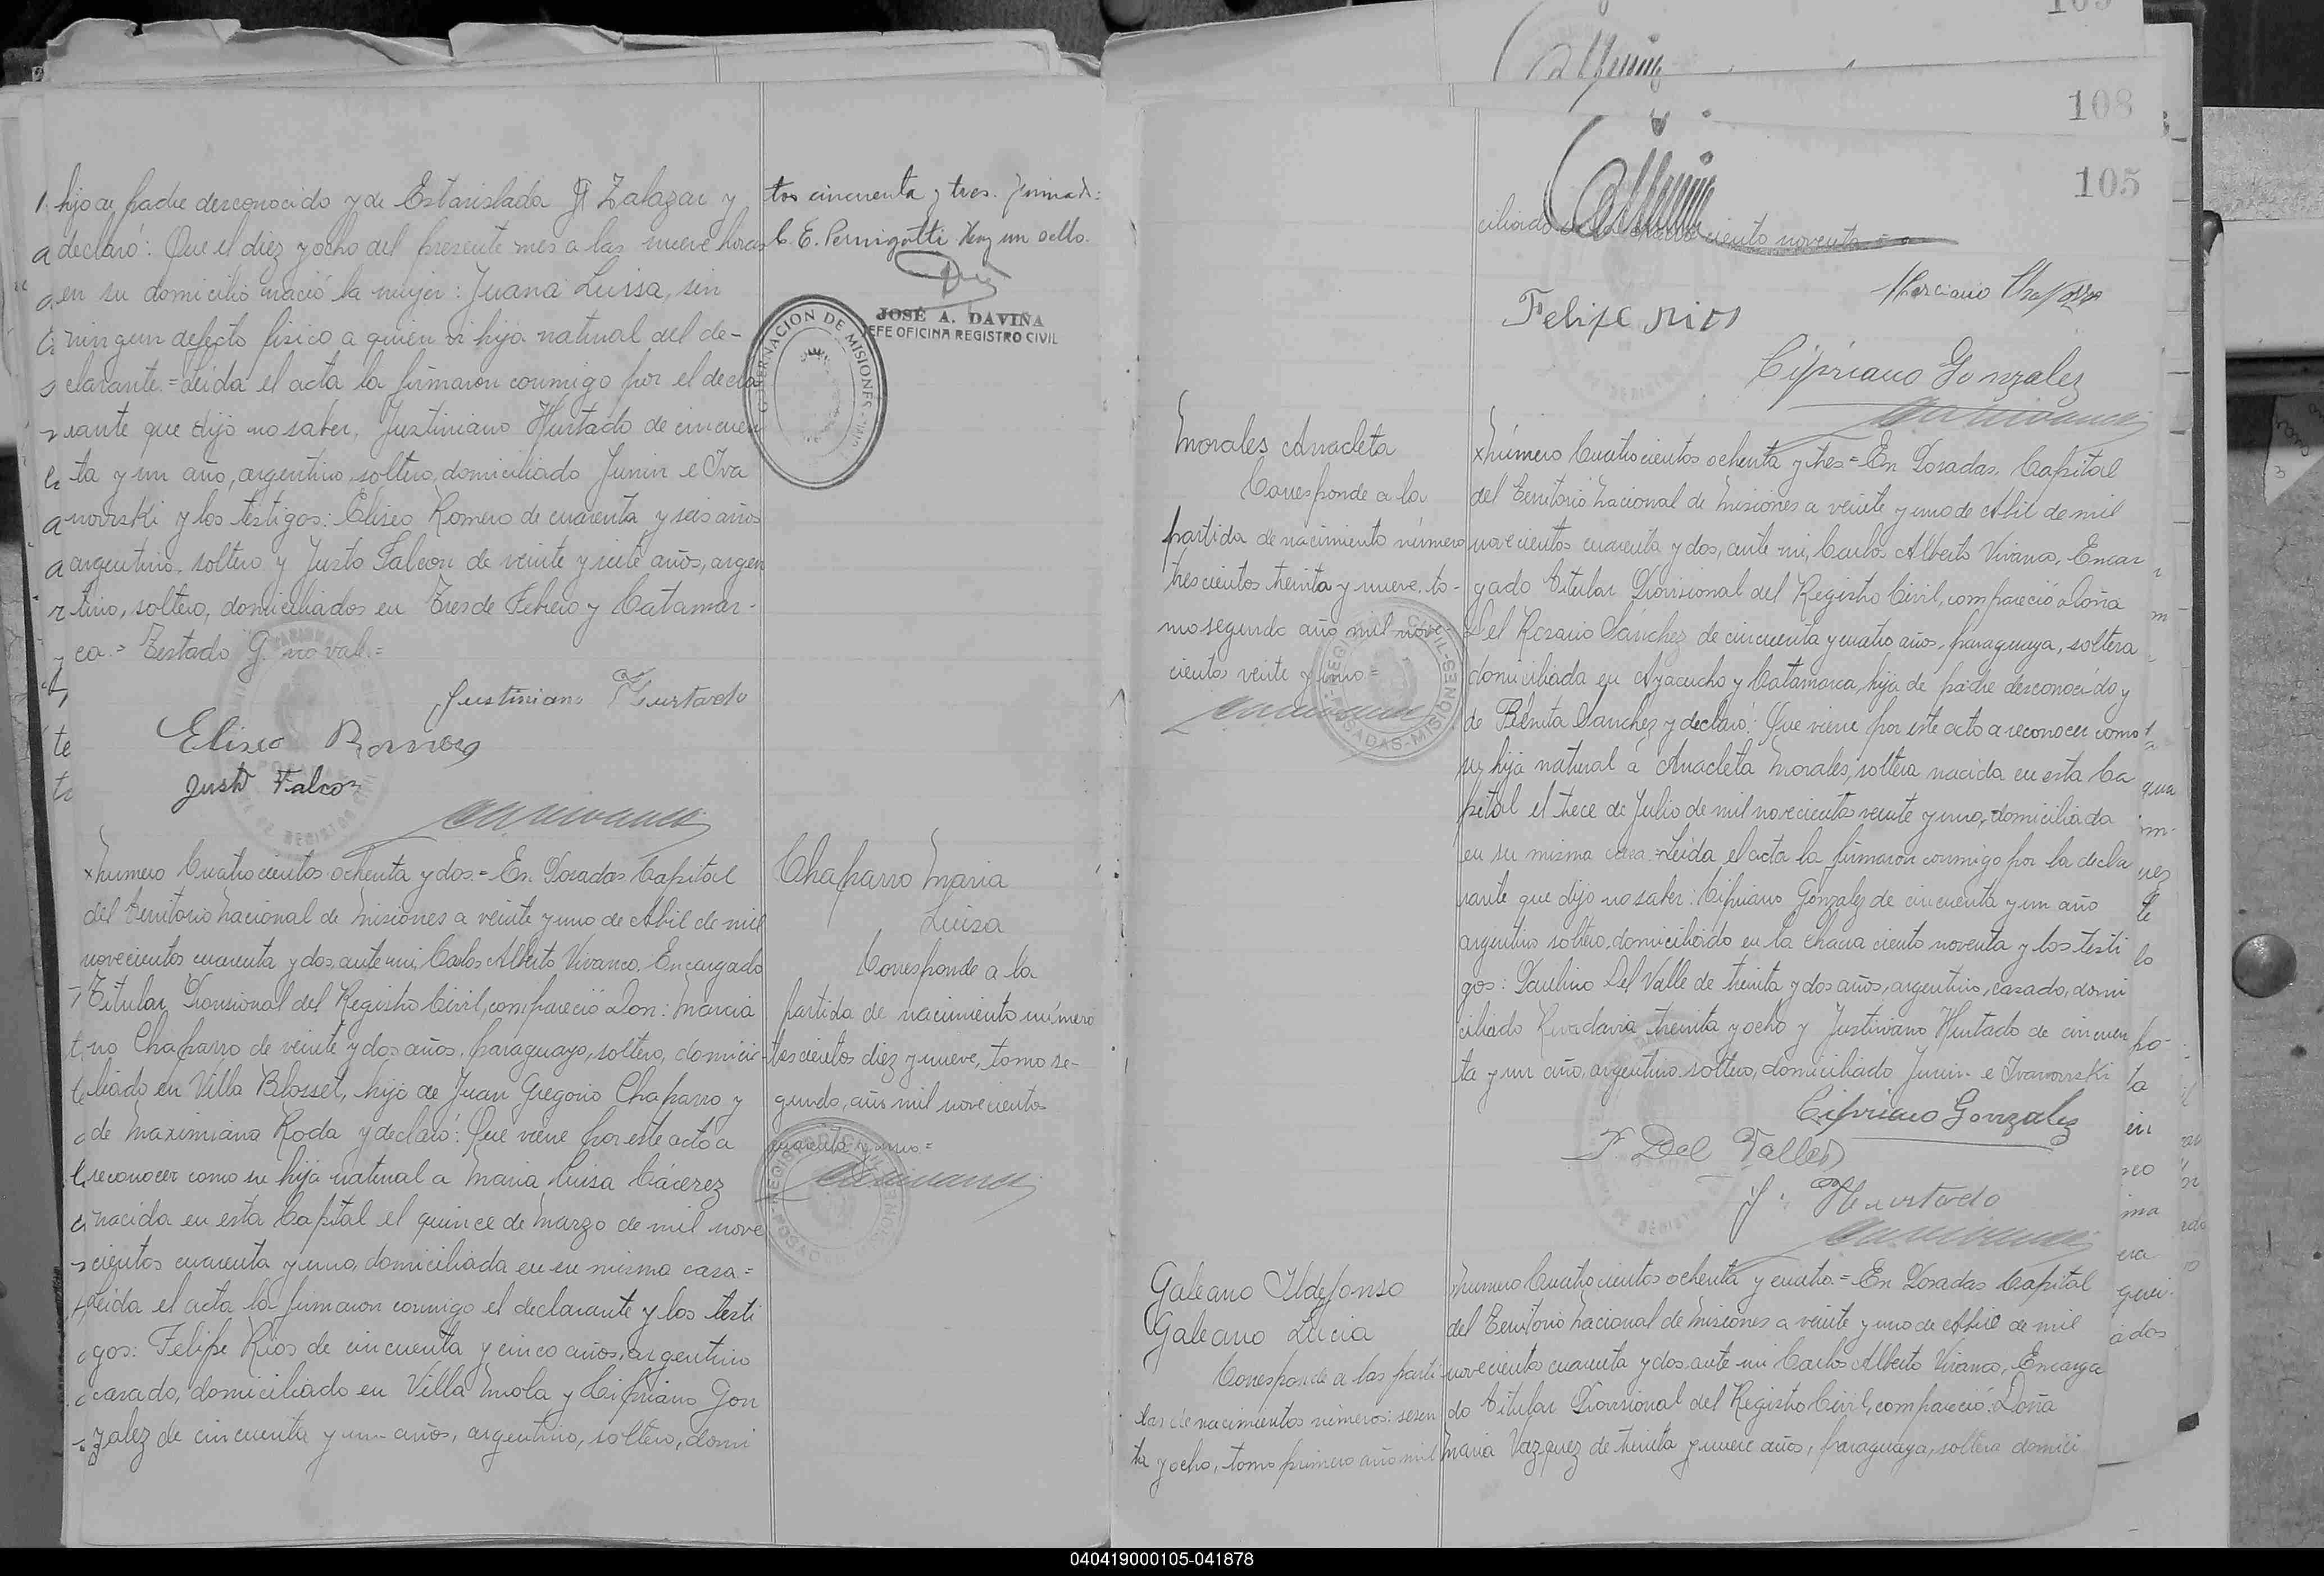 hijo de padre desconocido y de Estanislada Zalazar y
declaró: Que el diez y ocho del presente mes a las nueve horas
en su domicilio nació la mujer: Juana Luisa, sin
ningun defecto fisico a quien es hija natural del de-
clarante.=Leida el acta la firmaron conmigo por el decla
rante que dijo no saber, Justiniano Hurtado de cincuen
ta y un año, argentino, soltero, domiciliado Junin e Iva
nowski y los testigos: Eliseo Romero de cuarenta y seis años
argentino, soltero y Justo Falcon de veinte y siete años, argen
tino, soltero, domiciliados en Tres de Febrero y Catamar-
ca.= Testado G. no val.=
Justiniano Hurtado
Eliseo Romero
Justo Falcon
tos cincuenta y tres. Firmado:
C. E. Pernigotti Hay un sello.
JOSÉ A. DAVIÑA
JEFE OFICINA REGISTRO CIVIL
GOBERNACION DE MISIONES
x Numero Cuatrocientos ochenta y dos.= En Posadas Capital
del Territorio Nacional de Misiones a veinte y uno de Abril de mil
novecientos cuarenta y dos, ante mi, Carlos Alberto Vivanco, Encargado
Titular Provisional del Registro Civil, compareció Don: Marcia
no Chaparro de veinte y dos años, paraguayo, soltero, domici-
liado en Villa Blosset, hijo de Juan Gregorio Chaparro y
de Maximiana Roda y declaró: Que viene por este acto a
reconocer como su hija natural a Maria Luisa Cácerez
nacida en esta Capital el quince de Marzo de mil nove
cientos cuarenta y uno, domiciliada en su misma casa=
Leida el acta la firmaron conmigo el declarante y los testi
gos: Felipe Rios de cincuenta y cinco años, argentino
casado, domiciliado en Villa Urnola y Cipriano Gon
zalez de cincuenta y un años, argentino, soltero, domi
Chaparro Maria
Luisa
Corresponde a la
partida de nacimiento número
trescientos diez y nueve, tomo se-
gundo, año mil novecientos
cuarenta y uno=
109
108
105
ciliado en la chacra ciento noventa
Marciano Chaparro
Felipe Rios
Cipriano Gonzalez
Morales Anacleta
Corresponde a la
partida de nacimiento número
trescientos treinta y nueve, to-
mo segundo año mil nove
cientos veinte y uno=
REGISTRO CIVIL
POSADAS-MISIONES
x Número Cuatrocientos ochenta y tres= En Posadas, Capital
del Territorio Nacional de Misiones a veinte y uno de Abril de mil
novecientos cuarenta y dos, ante mi, Carlos Alberto Vivanco, Encar
gado Titular Provisional del Registro Civil, compareció Doña
Del Rosario Sánchez de cincuenta y cuatro años, paraguaya, soltera
domiciliada en Ayacucho y Catamarca, hija de padre desconocido y
de Benita Sanchez y declaró: Que viene por este acto a reconocer como
su hija natural á Anacleta Morales, soltera nacida en esta Ca
pital el trece de Julio de mil novecientos veinte y uno, domiciliada
en su misma casa=Leida el acta la firmaron conmigo por la decla
rante que dijo no saber: Cipriano Gonzalez de cincuenta y un año
argentino soltero, domiciliado en la chacra ciento noventa y los testi
gos: Paulino Del Valle de treinta y dos años, argentino, casado, domi
ciliado Rivadavia treinta y ocho y Justiniano Hurtado de cincuen
ta y un año, argentino soltero, domiciliado Junin e Ivanowski
Cipriano Gonzalez
P. Del Valle
J. Hurtado
Galeano Ildefonso
Galeano Lucia
Corresponde a las parti
das de nacimientos números: sesen
ta y ocho, tomo primero año mil
Numero Cuatrocientos ochenta y cuatro.= En Posadas Capital
del Territorio Nacional de Misiones a veinte y uno de Abril de mil
novecientos cuarenta y dos, ante mi Carlos Alberto Vivanco, Encarga
do Titular Provisional del Registro Civil, compareció: Doña
Maria Vazquez de treinta y nueve años, paraguaya, soltera domici
040419000105-041878